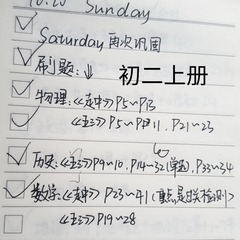 10.20 Sunday
Saturday 再次巩固
刷题:↓
初二上册
物理:《走中》P5~P13
《王》P5~P11,P21~23
历史:《王》P9~10,P14~32(学法),P33~34
数学:《走中》P23~41(重点是检测)
《王》P19~28